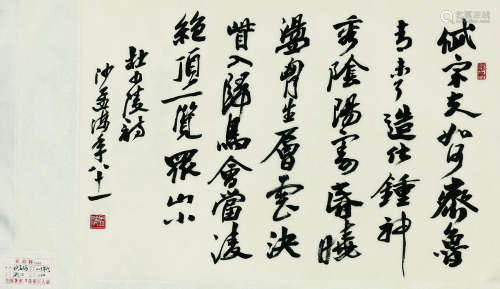 岱宗夫如何齊魯
青未了造化鍾神
秀陰陽割昏曉
盪胸生層雲決
眥入歸鳥會當凌
絕頂一覽眾山小
杜少陵詩
沙孟海年八十一